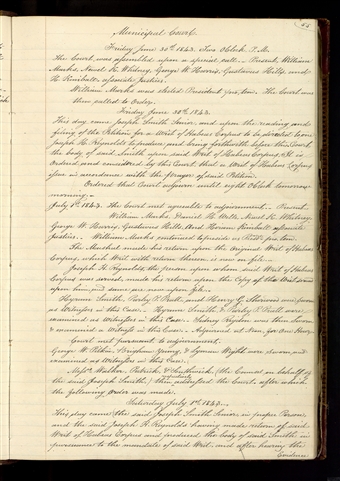 55
Municipal Court
Friday June 30th 1843. Two O'clock P.M.
The Court was assembled upon a special call. Present William
Marks, Newel K. Whitney, George W Harris, Gustavus Hills, and
H. Kimball, associate Justices.
William Marks was elected President pro. tem. The Court was
then called to Order.
Friday June 30th 1843.
This day came Joseph Smith Senior, and upon the reading and
filing of the Petition for a Writ of Habeas Corpus to be directed to one
Joseph H. Reynolds to produce and bring forthwith before this Court
the body of said Smith upon said Writ of Habeas Corpus, It is
Ordered and considered by the Court, that a Writ of Habeas Corpus
issue in accordance with the prayer of said Petition.
Ordered that Court adjourn until eight O'Clock tomorrow
morning.
July 1st 1843. The Court met agreeable to adjournment. Present
William Marks, Daniel H. Wells, Newel K. Whitney,
George W. Harris, Gustavus Hills, And Hiram Kimball associate
Justices. William Marks continued to preside as Prest pro tem.
The Marshal made his return upon the Original Writ of Habeas
Corpus, which Writ with return thereon is now on file.
Joseph H. Reynolds, the person upon whom said Writ of Habeas
Corpus was served, made his return upon the Copy of the Writ served
upon him, and same is now upon file.
Hyrum Smith, Parley P. Pratt and Henry G. Sherwood were sworn
as Witnesses in this Case. Hyrum Smith & Parley P. Pratt were
examined as Witnesses in this Case. Sidney Rigdon was then sworn
& examined a Witness in this Case. Adjourned at Noon, for One Hour.
Court met pursuant to adjournment.
George W. Pitkin, Brigham Young, & Lyman Wight were sworn, and
examined as Witnesses in this Case.
Messrs. Walker, Patrick, & Southwick, (the Counsel on behalf of
the said Joseph Smith,) then addressed the Court, after which
the following Order was made.
Saturday July 1st 1843.
This day came the said Joseph Smith Senior in proper Person
and the said Joseph H. Reynolds having made return of said
Writ of Habeas Corpus and produced the body of said Smith in
pursuance to the mandate of said Writ, and after hearing the
Evidence